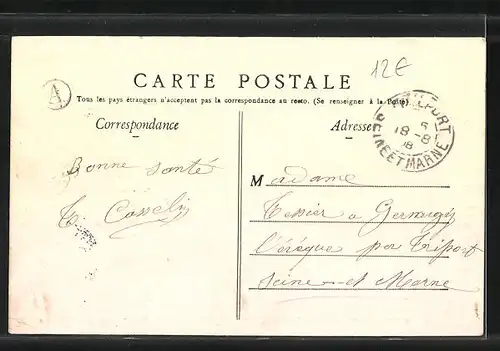 12€
A
CARTE POSTALE
Tous les pays étrangers n'acceptent pas la correspondance au recto. (Se renseigner à la Poste).
Correspondance
Adresse
TRILPORT
18 -8
08
SEINE ET MARNE
Bonne santé
Madame
Tessier a Germigny
l'évêque par Trilport
Seine-et Marne